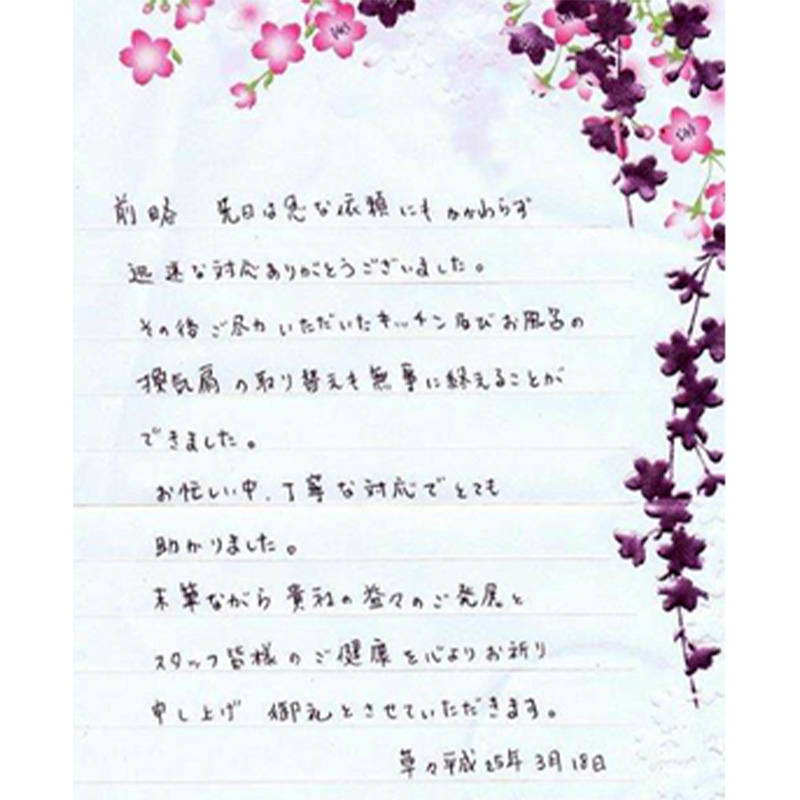 前略　先日は急な依頼にもかかわらず
迅速な対応ありがとうございました。
その後ご尽力いただいたキッチン及びお風呂の
換気扇の取り替えも無事に終えることが
できました。
お忙しい中、丁寧な対応でとても
助かりました。
末筆ながら貴社の益々のご発展と
スタッフ皆様のご健康を心よりお祈り
申し上げ　御礼とさせていただきます。
草々平成25年3月18日